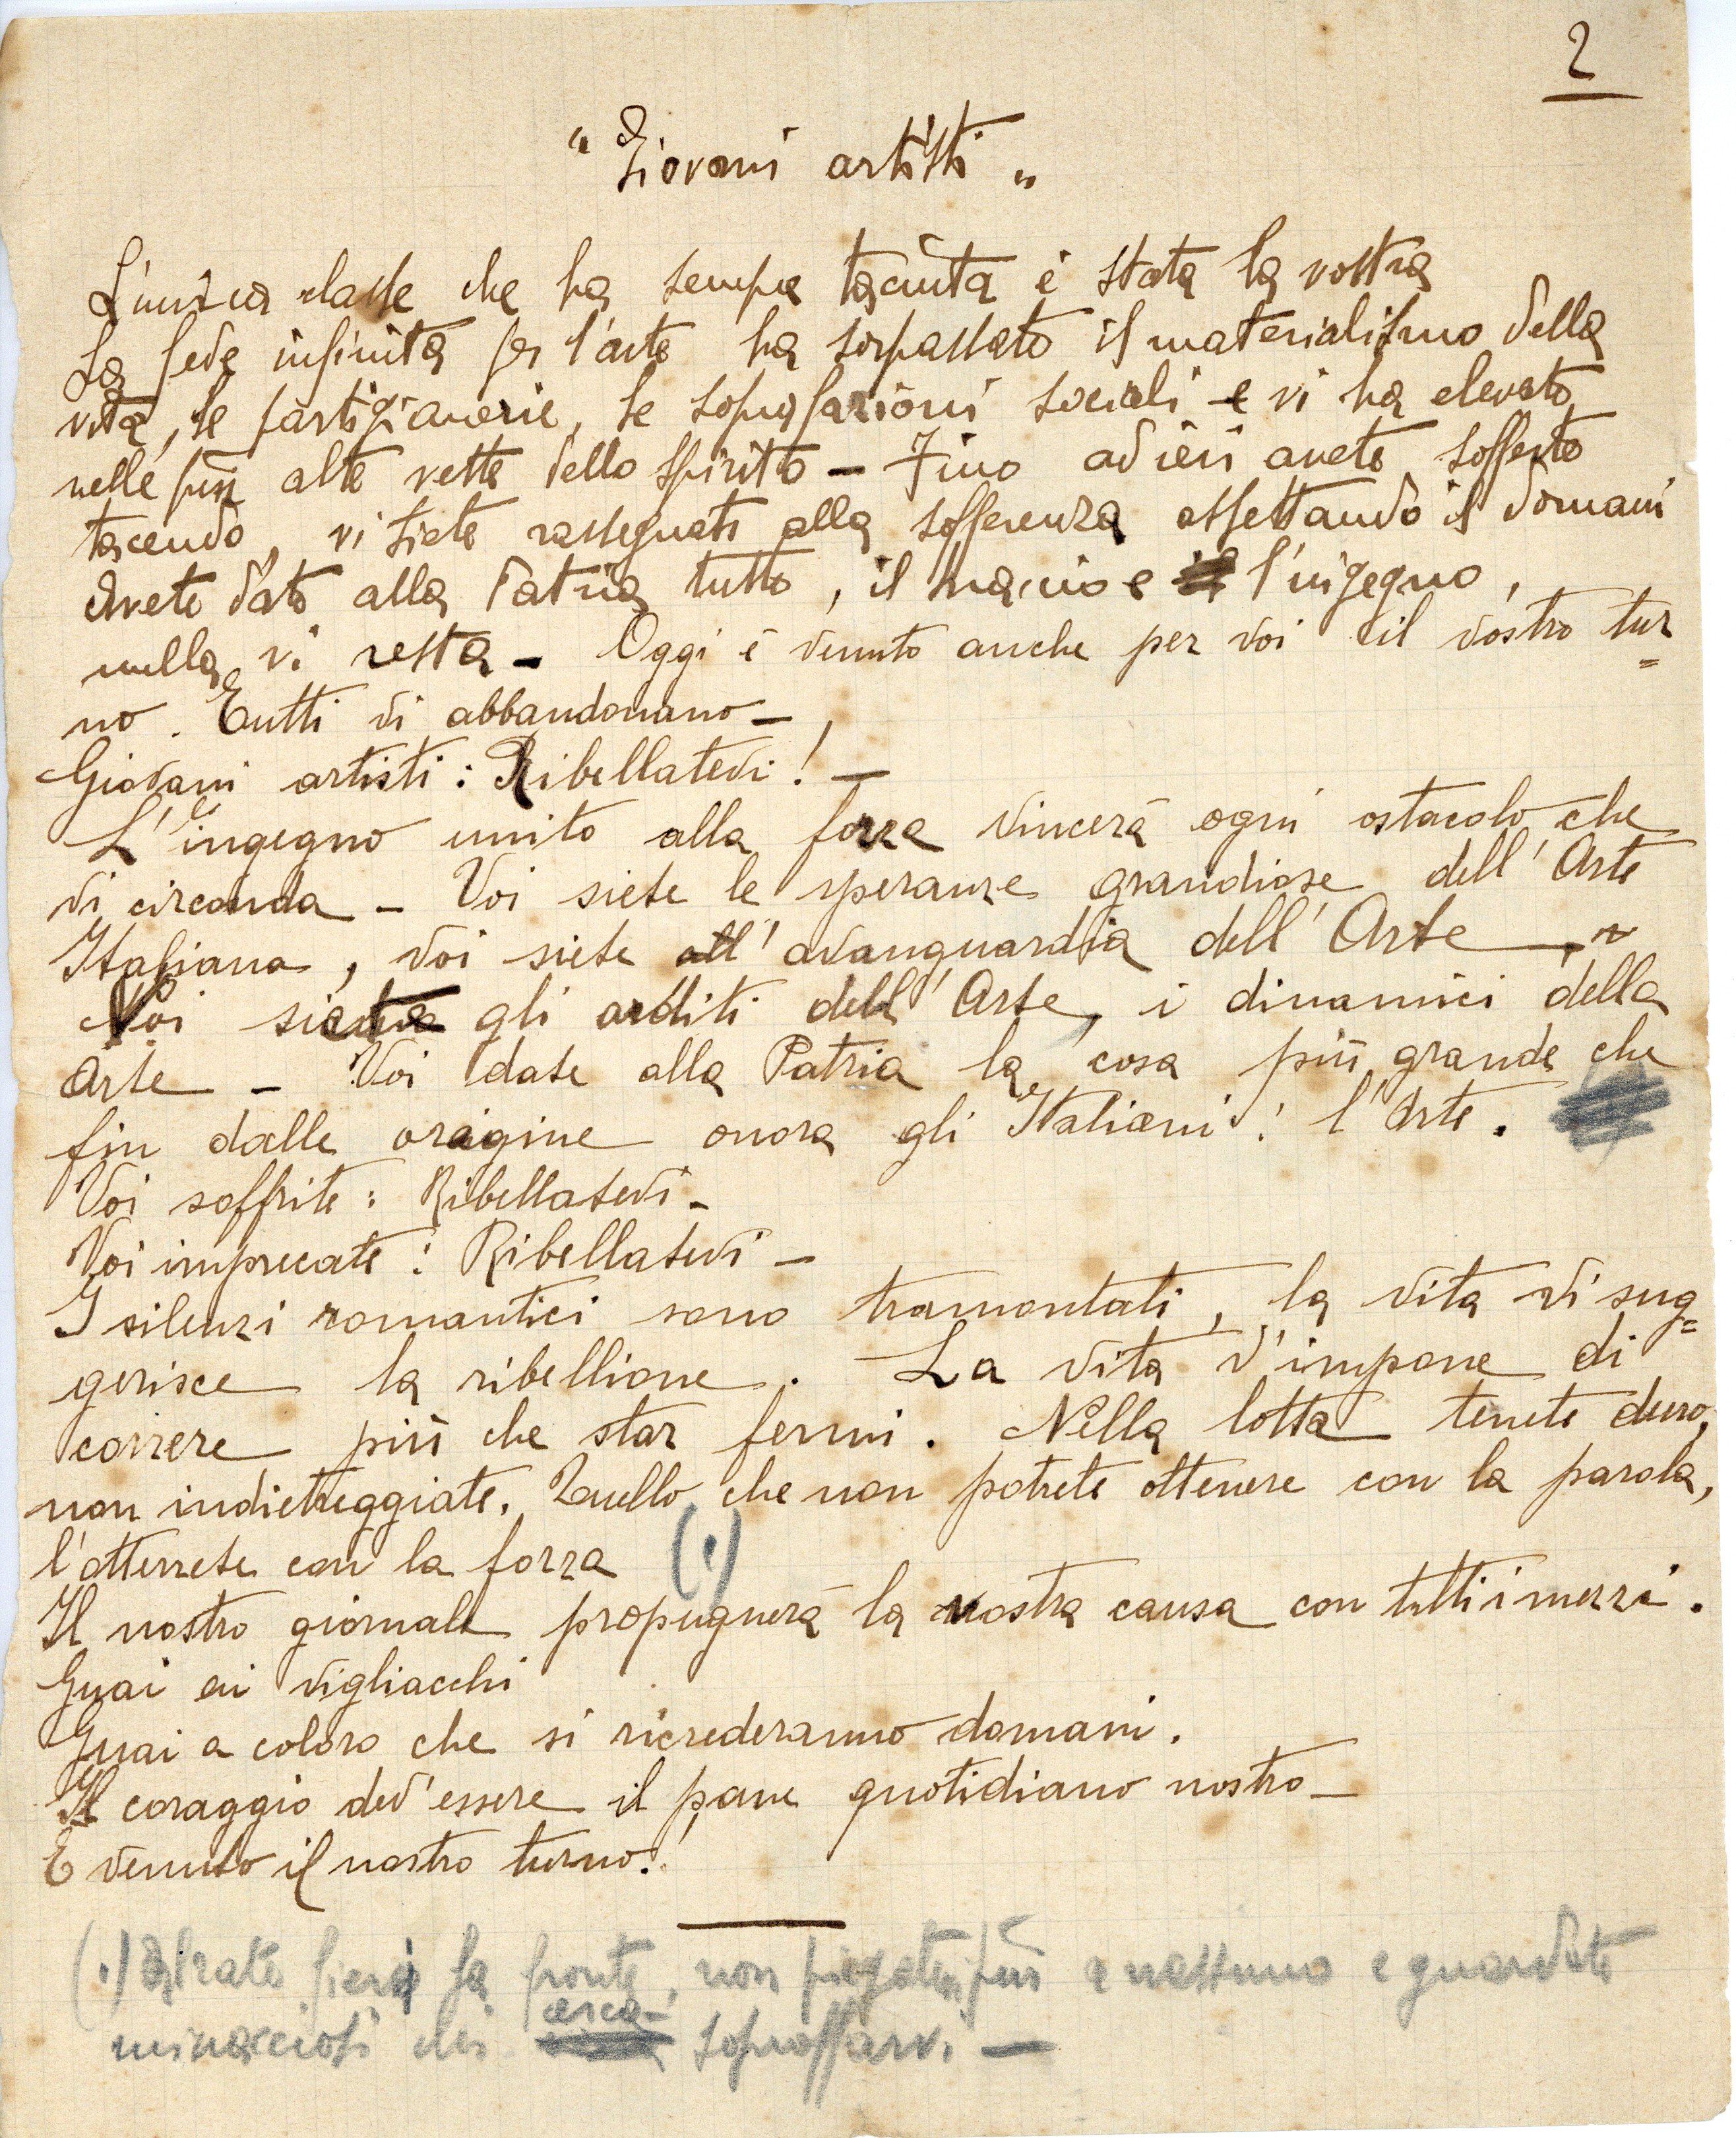 2
"Giovani artisti"
L'unica classe che ha sempre taciuta è stata la vostra
La fede infinita per l'arte ha sorpassato il materialismo della
vita, le partigianerie, le soprafazioni sociali e vi ha elevato
nelle più alte vette dello spirito - Fino ad ieri avete sofferto
tacendo, vi siete rassegnati alla sofferenza aspettando il domani
Avete dato alla Patria tutto, il braccio e l'ingegno,
nulla vi resta - Oggi è venuto anche per voi il vostro tur=
no. Tutti vi abbandonano -
Giovani artisti: Ribellatevi! -
L'ingegno unito alla forza vincerà ogni ostacolo che
vi circonda - Voi siete le speranze grandiose dell'Arte
Italiana, voi siete all'avanguardia dell'Arte -
Voi siete gli arditi dell'Arte, i dinamici della
Arte - Voi date alla Patria la cosa più grande che
fin dalle origine onora gli Italiani: l'Arte.
Voi soffrite: Ribellatevi -
Voi imprecate: Ribellatevi -
I silenzi romantici sono tramontati, la vita vi sug=
gerisce la ribellione. La vita v'impone di
correre più che star fermi. Nella lotta tenete duro,
non indietreggiate. Quello che non potrete ottenere con la parola,
l'otterrete con la forza (.)
Il nostro giornale propugnerà la nostra causa con tutti i mezzi.
Guai ai vigliacchi
Guai a coloro che si ricrederanno domani.
Il coraggio dev'essere il pane quotidiano nostro -
E venuto il nostro turno!
(.) Alzate fiera la fronte, non piegatevi più a nessuno e guardate
minacciosi chi cerca soproffarvi -